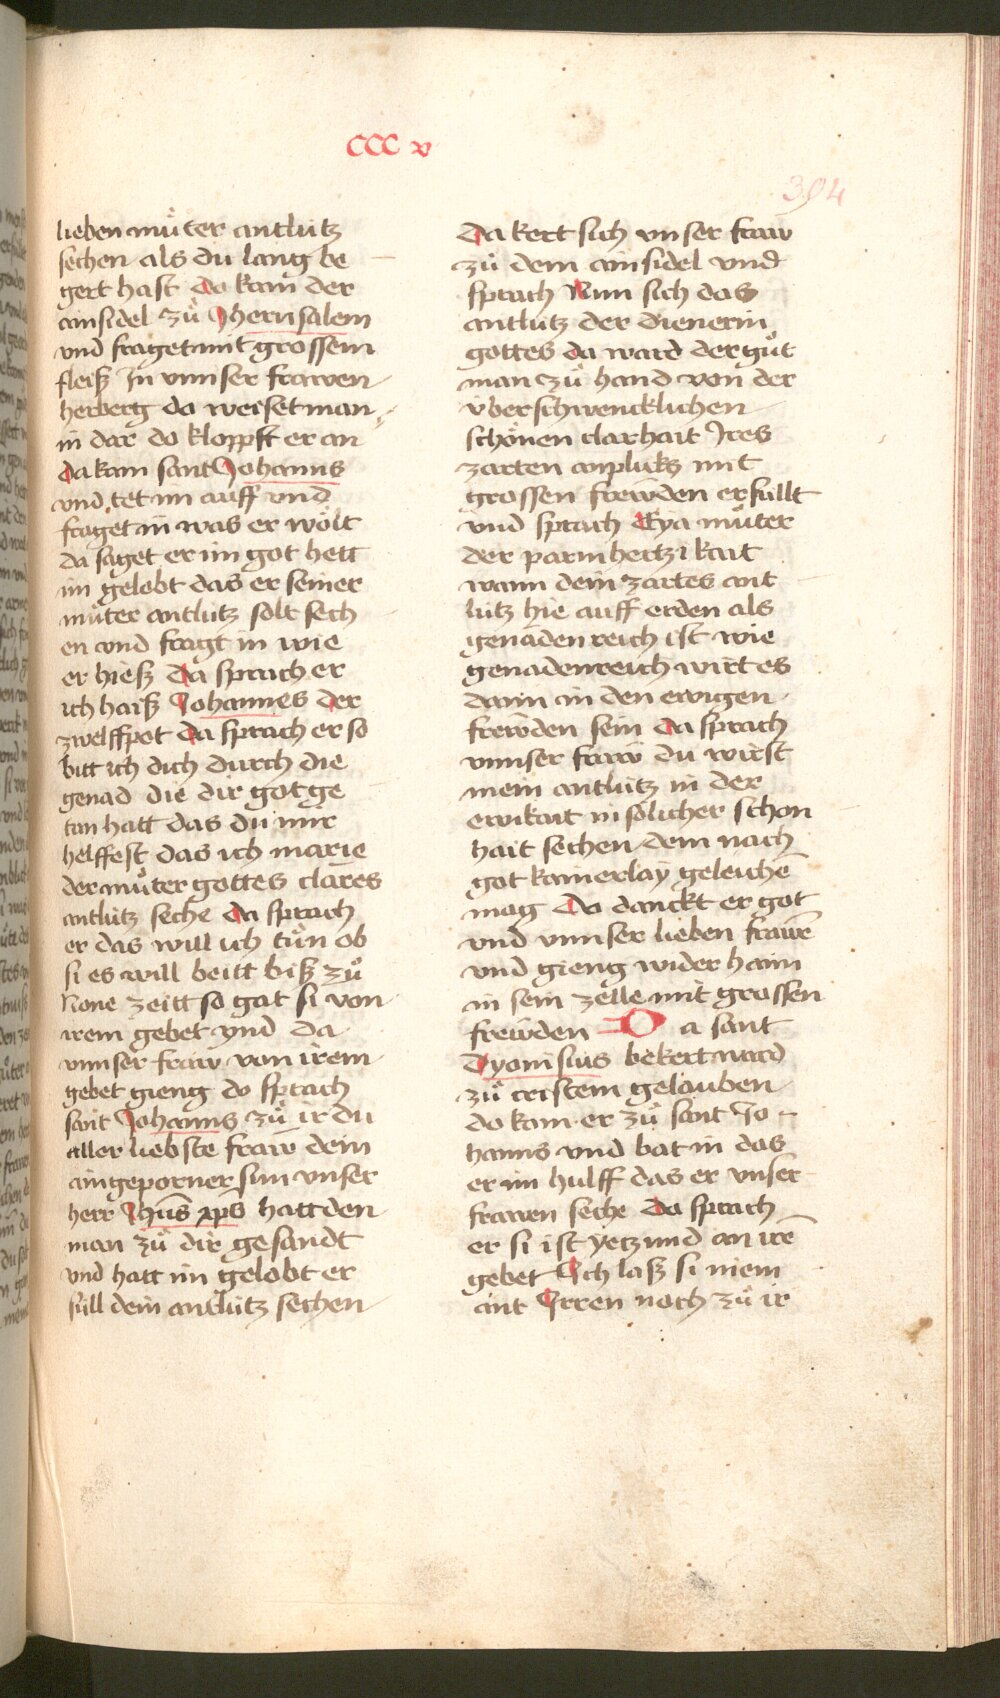 CCC v
394
lieben muͦter antlütz
sechen als du lang be
gert hast Do kam der
ainsidel zuͦ Jherusalem
vnd fraget mit grossem
fleiß In vnnser frawen
herberg da weiset man
in dar do kloppft er an
da kam sant Johanns
vnd tet im auff vnd
fraget in was er wölt
da saget er im got hett
im gelobt das er seiner
muͦter antlütz solt sech
en vnd fragt in wie
er hieß Da sprach er
ich haiß Johannes der
zwelffpot Da sprach er so
bitt ich dich durch die
genad die dir got ge
tan hatt das du mir
helffest das ich marie
der muͦter gottes clares
antlütz seche Da sprach
er das will ich tuͦn ob
si es will beitt biß zuͦ
None zeitt so gat si von
irem gebet vnd da
vnnser fraw von irem
gebet gieng do sprach
sant Johanns zuͦ ir du
aller liebste fraw dein
aingeporner sun vnser
herr Jhūs xp̄s hatt den
man zuͦ dir gesandt
vnd hatt im gelobt er
süll dein antlütz sechen
Da kert sich vnser fraw
zuͦ dem ainsidel vnd
sprach Nun sich das
antlütz der dienerin
gottes da ward der guͦt
man zuͦ hand von der
überschwencklichen
schönen clarhait Ires
zarten anplicks mit
grossen frewden erfüllt
vnd sprach Eya muͦter
der parmhertzikait
wann dein zartes ant
lütz hie auff erden als
genaden reich ist wie
genadenreich wirt es
dann in den ewigen
frewden sein Da sprach
vnnser fraw du wirst
mein antlütz in der
ewikait in sölicher schon
hait sechen dem nach
got kainerlay geleichē
mag Do danckt er got
vnd vnnser lieben frawē
vnd gieng wider haim
in sein zelle mit grossen
frewden Da sant
Dyonisius bekert ward
zuͦ cristem gelauben
do kam er zuͦ sant Jo
hanns vnd bat in das
er im hulff das er vnser
frawen seche Da sprach
er si ist yetzund an irē
gebet Ich laß si niem
ant Irren noch zuͦ ir